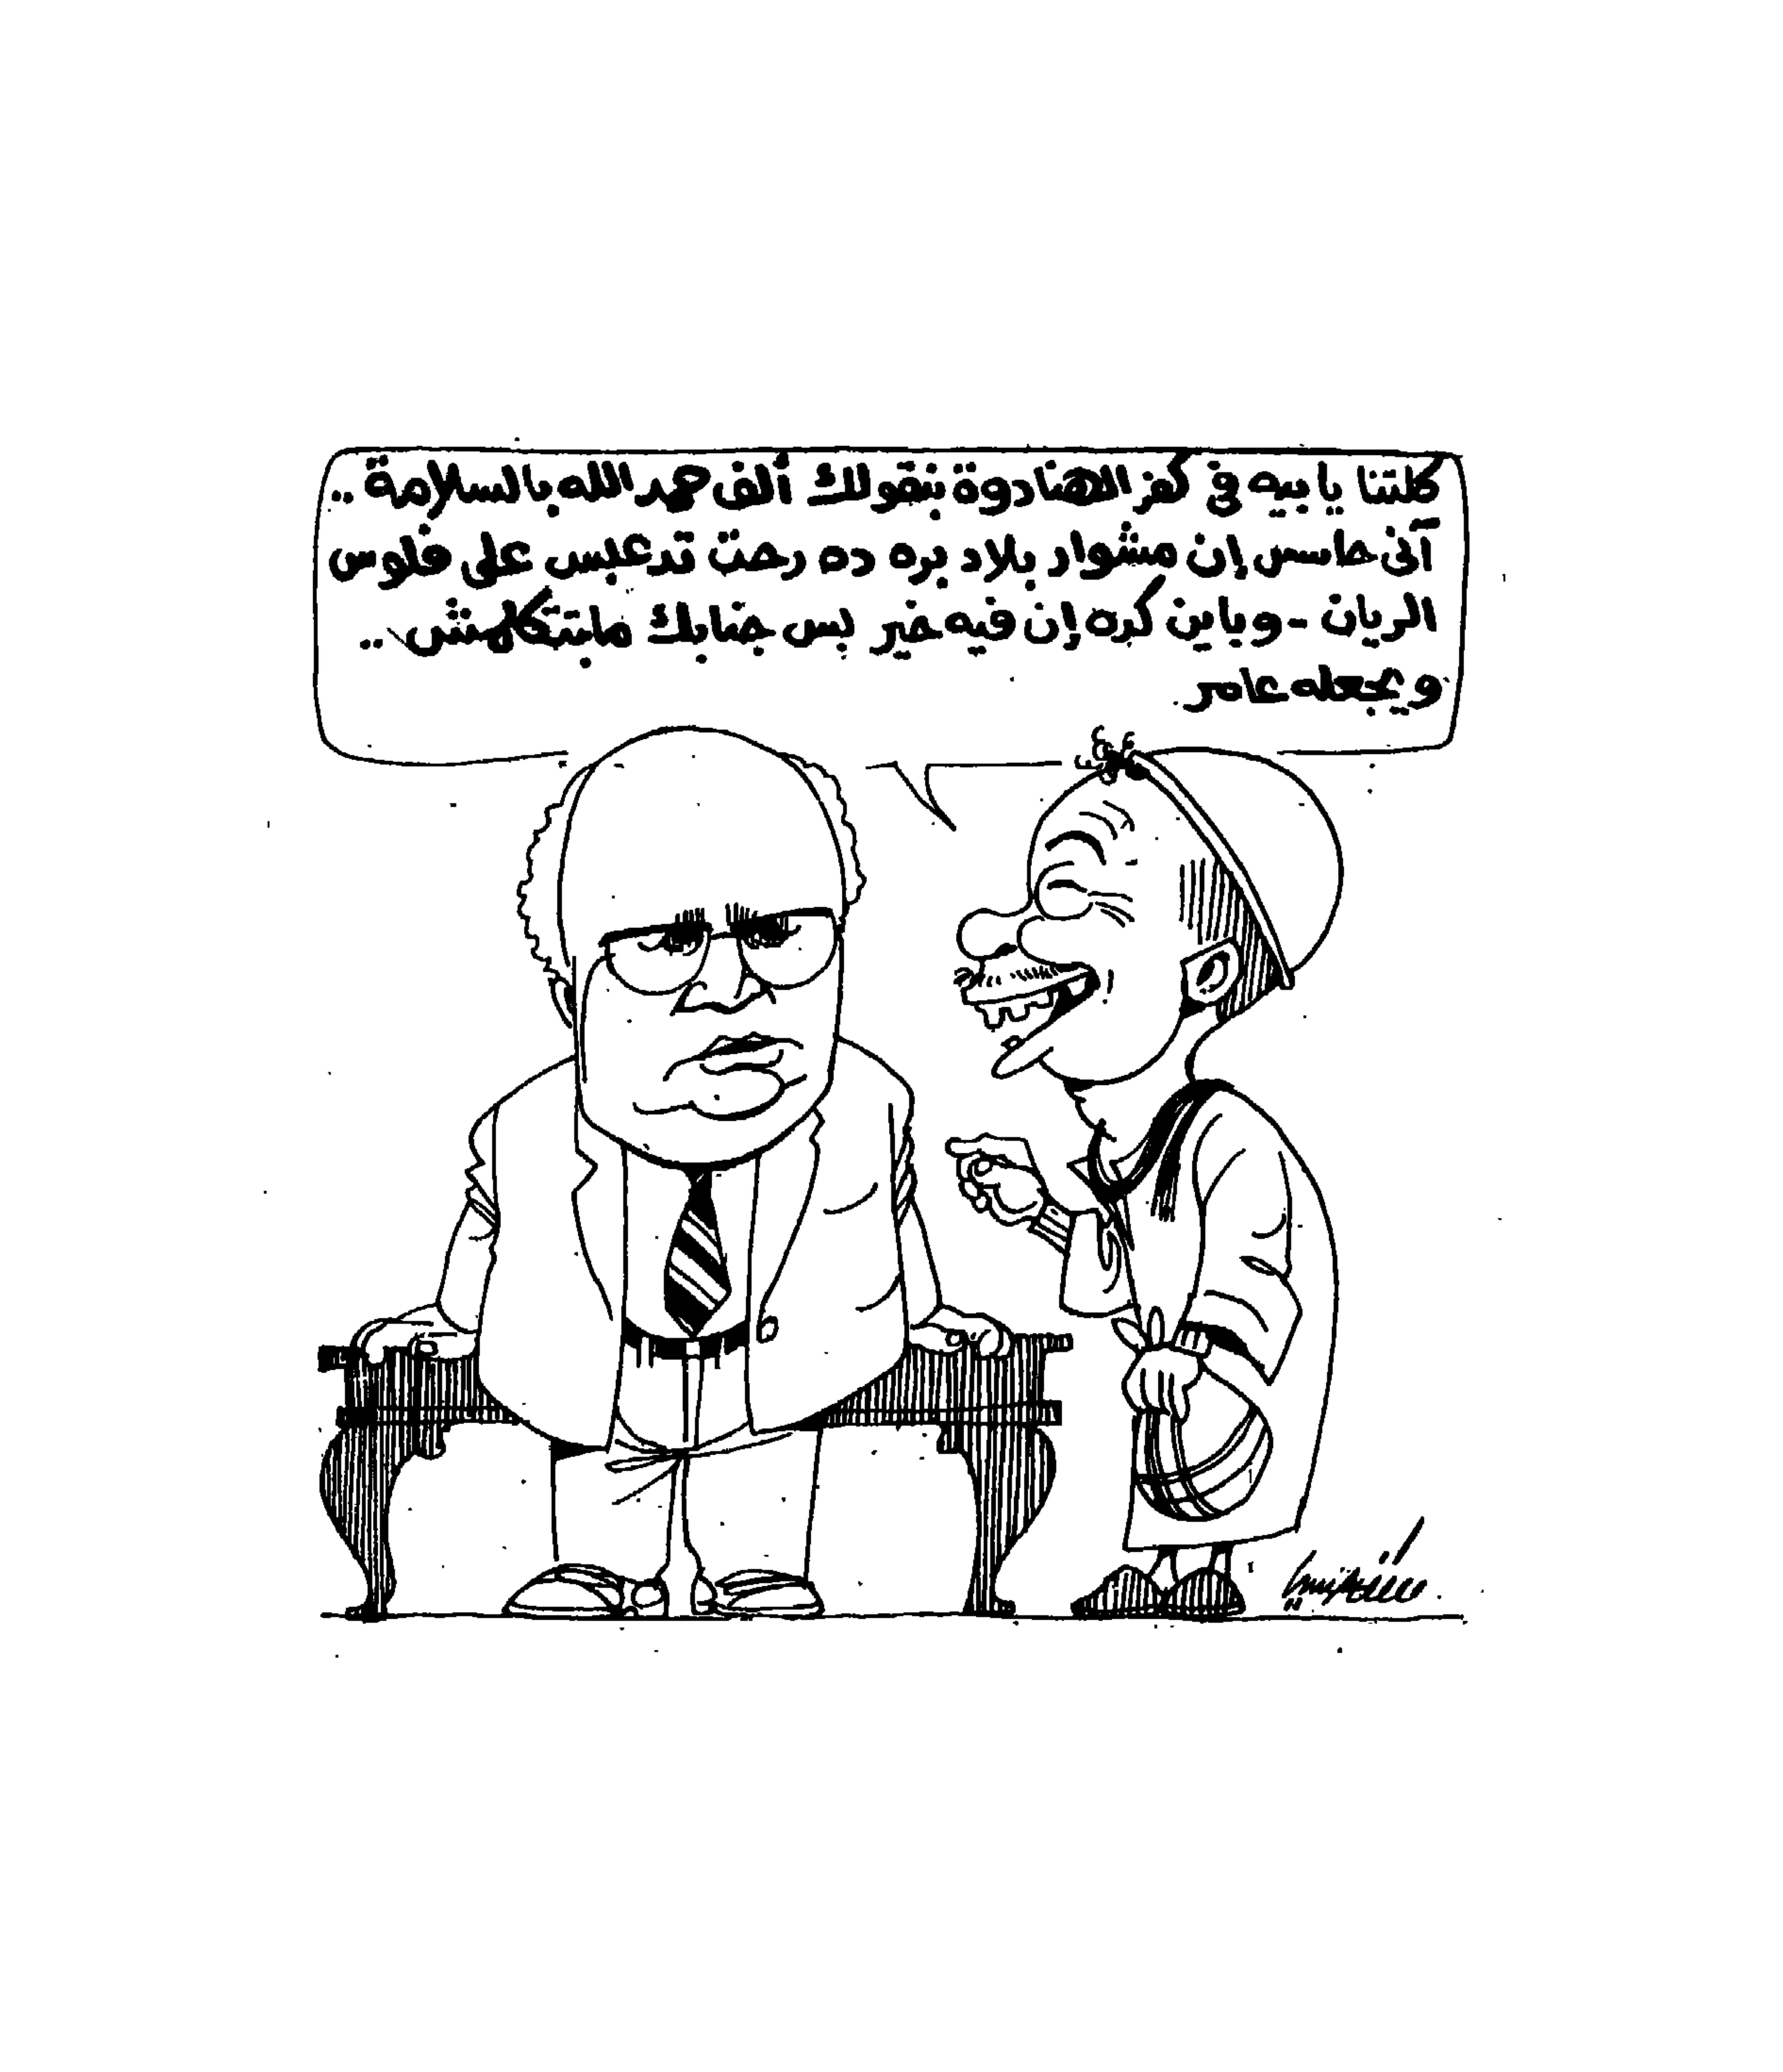 كلتنا يا بيه فى كفر الهنادوة بنقولك ألف حمد الله بالسلامة ..
آنى حاسس إن مشوار بلاد بره ده رحت تدعبس على فلوس
الريان - وباين كده إن فيه خير بس جنابك مابتتكلمش ..
ويجعله عامر